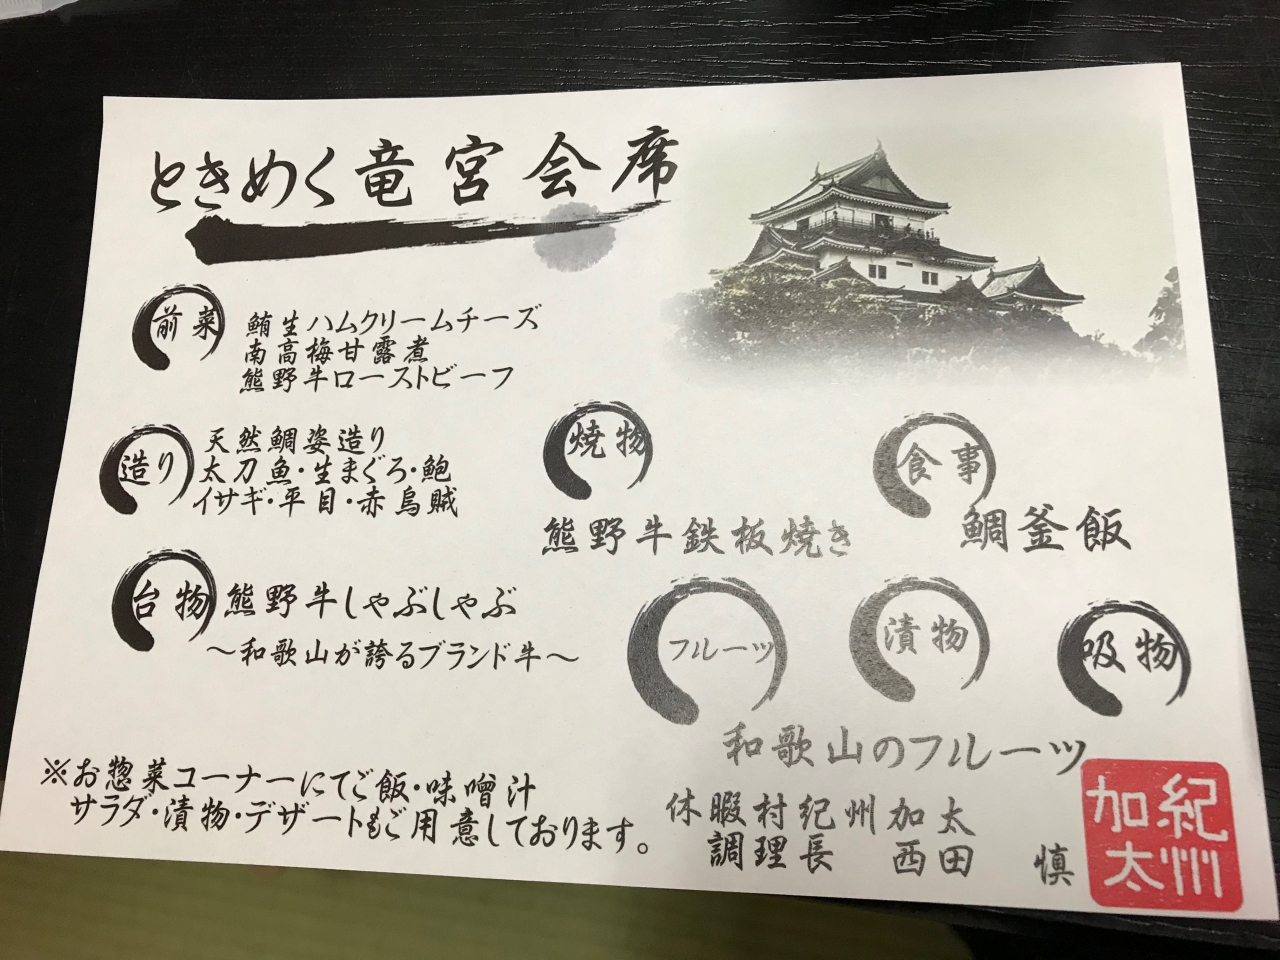 ときめく竜宮会席
前菜
鮪生ハムクリームチーズ
南高梅甘露煮
熊野牛ローストビーフ
造り
天然鯛姿造り
太刀魚・生まぐろ・鮑
イサギ・平目・赤烏賊
台物
熊野牛しゃぶしゃぶ
～和歌山が誇るブランド牛～
焼物
熊野牛鉄板焼き
食事
鯛釜飯
フルーツ
漬物
吸物
和歌山のフルーツ
※お惣菜コーナーにてご飯・味噌汁
サラダ・漬物・デザートもご用意しております。
休暇村紀州加太
調理長 西田 慎
紀州
加太